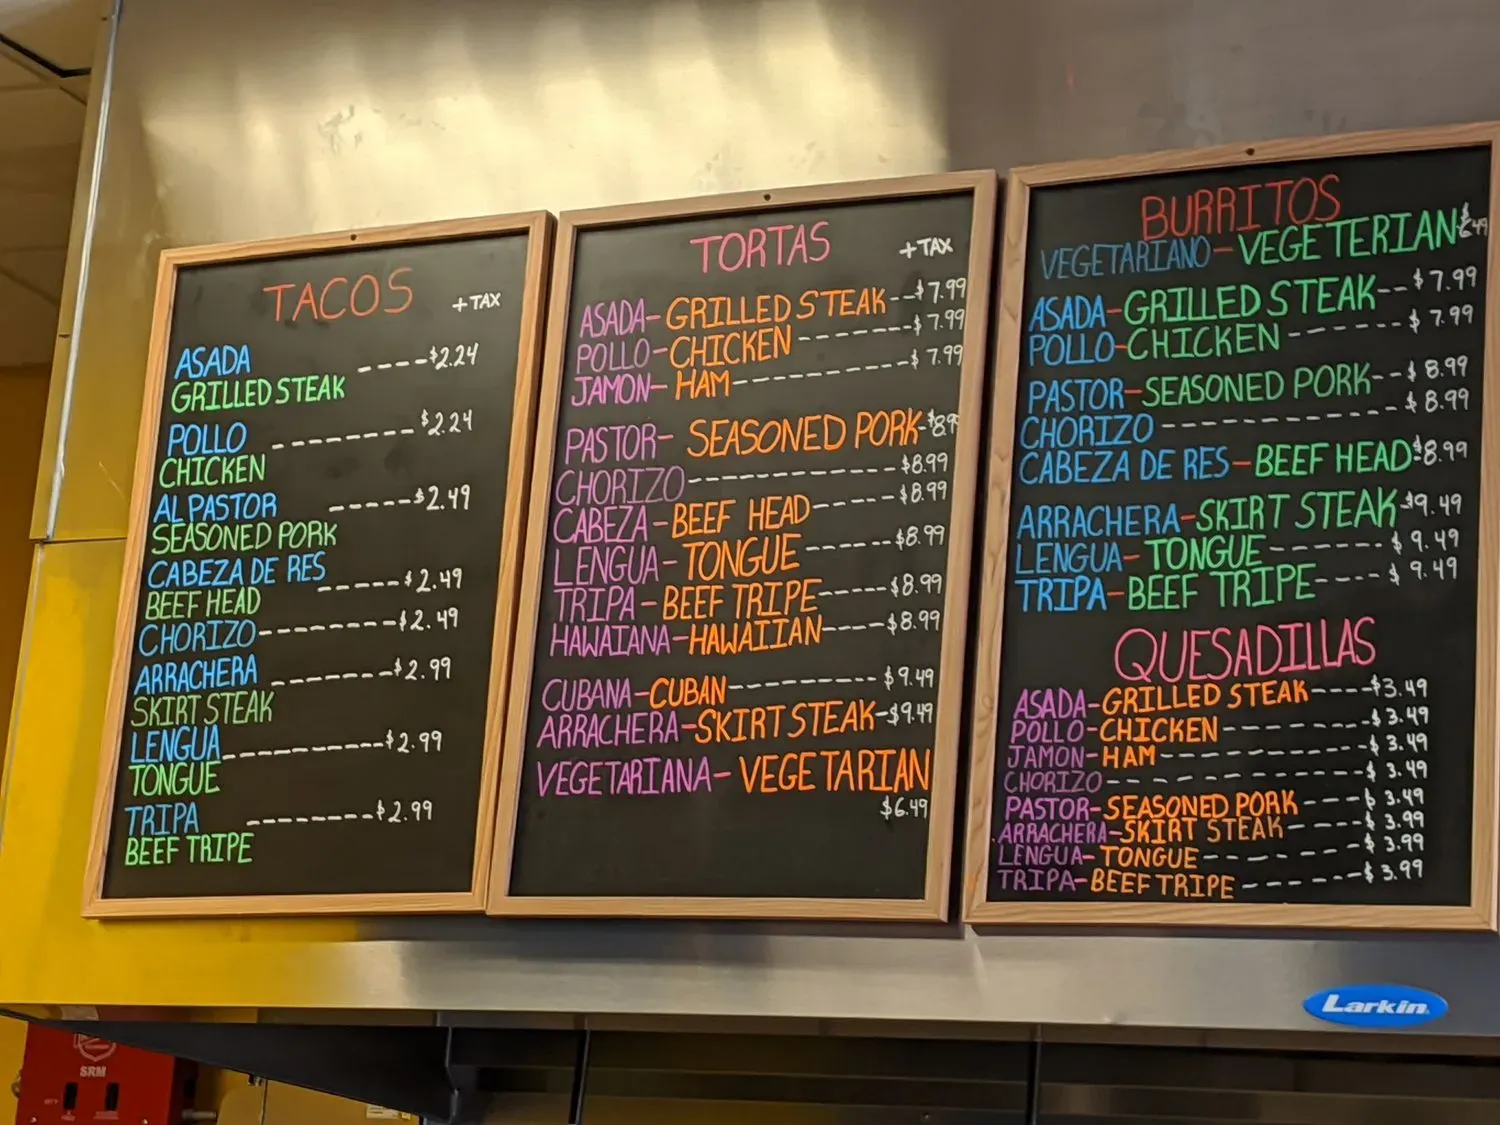 TACOS
+ TAX
ASADA ----$2.24
GRILLED STEAK
POLLO --------$2.24
CHICKEN
AL PASTOR -----$2.49
SEASONED PORK
CABEZA DE RES -----$2.49
BEEF HEAD
CHORIZO--------$2.49
ARRACHERA -------$2.99
SKIRT STEAK
LENGUA----------$2.99
TONGUE
TRIPA --------$2.99
BEEF TRIPE
TORTAS
+ TAX
ASADA-GRILLED STEAK--$7.99
POLLO-CHICKEN-------$7.99
JAMON-HAM----------$7.99
PASTOR- SEASONED PORK-$8.9
CHORIZO------------$8.99
CABEZA-BEEF HEAD----$8.99
LENGUA-TONGUE-----$8.99
TRIPA-BEEF TRIPE----$8.99
HAWAIANA-HAWAIIAN----$8.99
CUBANA-CUBAN--------$9.49
ARRACHERA-SKIRT STEAK-$9.49
VEGETARIANA- VEGETARIAN
$6.49
BURRITOS
VEGETARIANO-VEGETERIAN-$6.49
ASADA-GRILLED STEAK--$7.99
POLLO-CHICKEN------$7.99
PASTOR-SEASONED PORK--$8.99
CHORIZO------------$8.99
CABEZA DE RES-BEEF HEAD-$8.99
ARRACHERA-SKIRT STEAK-$9.49
LENGUA-TONGUE------$9.49
TRIPA-BEEF TRIPE----$9.49
QUESADILLAS
ASADA-GRILLED STEAK----$3.49
POLLO-CHICKEN-------$3.49
JAMON-HAM----------$3.49
CHORIZO------------$3.49
PASTOR-SEASONED PORK---$3.49
ARRACHERA-SKIRT STEAK----$3.99
LENGUA-TONGUE-------$3.99
TRIPA-BEEF TRIPE------$3.99
Larkin
SRM